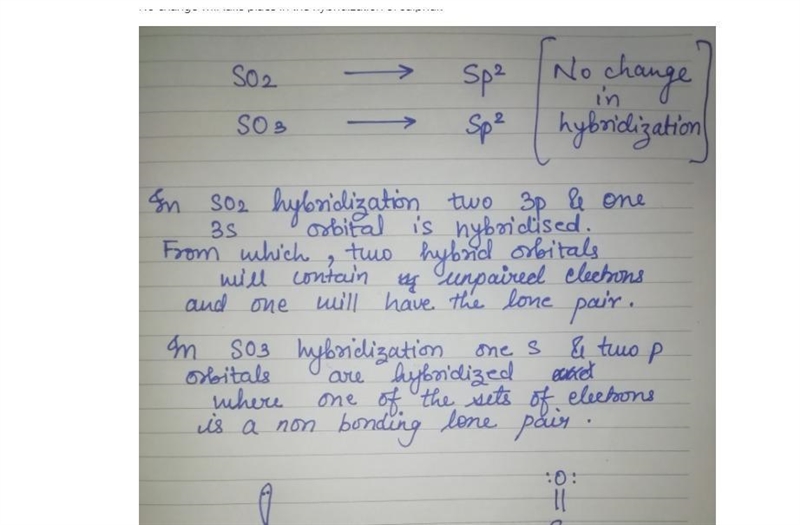 No change will take place in the hybridization of sulphur.
SO2 → Sp² [No change
in
SO3 → Sp² hybridization]
In SO2 hybridization two 3p & one
3s orbital is hybridised.
From which, two hybrid orbitals
will contain unpaired electrons
and one will have the lone pair.
In SO3 hybridization one s & two p
orbitals are hybridized
where one of the sets of electrons
is a non bonding lone pair.
:O:
||